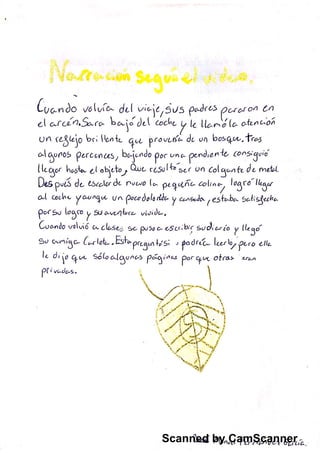 Narración según el video.
Cuando volvía del viaje, sus padres pararon en
el arcén. Sara bajó del coche y le llamó la atención
un reflejo brillente que provenía de un bosque. tras
algunos percances, bajando por una pendiente consiguió
llegar hasta el objeto, Que resultó ser un colgante de metal.
Después de escalar de nuevo la pequeña colina, logró llegar
al coche y aunque un poco dolorida y cansada, estaba satisfecha
por su logro y su aventura vivida.
Cuando volvió a clase, se puso a escribir su diario y llegó
su amiga Carlota. Esta preguntó si podría leerlo, pero ella
le dijo que sólo algunas páginas porque otras eran
privadas.
Scanned by CamScanner